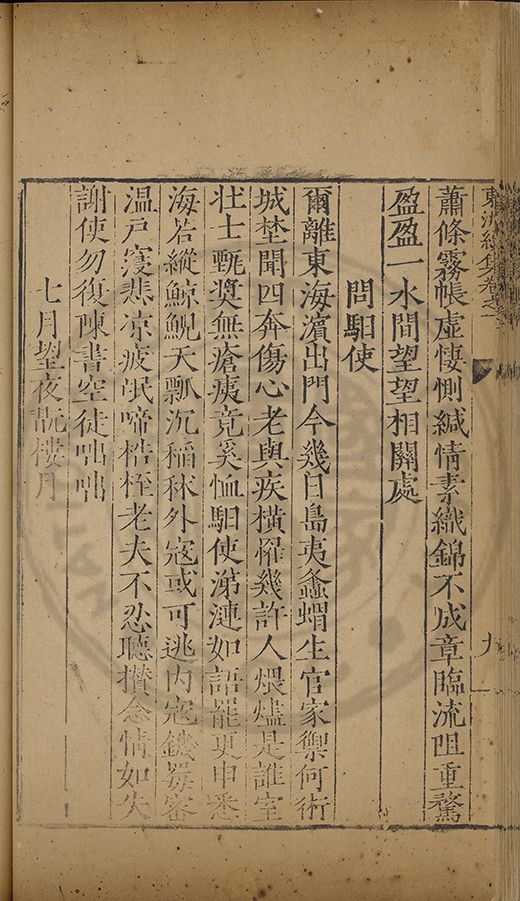 東洲續集卷之一 九
蕭條霧帳虛悽惻緘情素織錦不成章臨流阻重騖
盈盈一水間望望相關處
問馹使
爾離東海濱出門今幾日島夷螽蝟生官家禦何術
城埜聞四奔傷心老與疾橫罹幾許人煨燼是誰室
壯士無瘡痍竟奚恤馹使涕漣如語罷更申悉
海若縱鯨鯢天瓢沉稲秫外寇或可逃内寇密
温戶寖悲凉疲氓啼梏桎老夫不忍聽攅念情如失
謝使勿復陳書空徒咄咄
七月望夜翫樓月